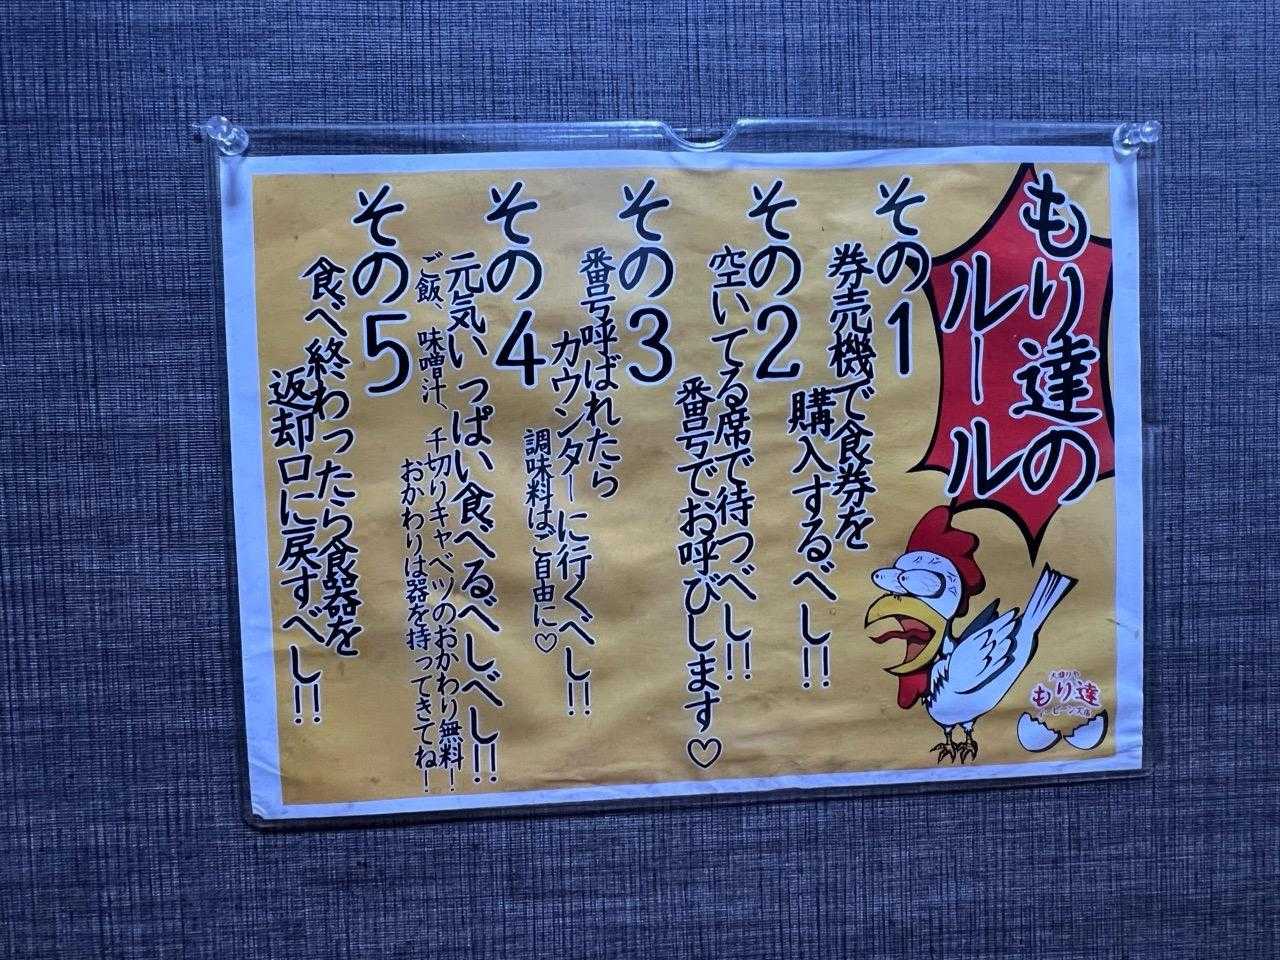 もり達の
ルール
その1
券売機で食券を
購入するべし!!
その2
空いてる席で待つべし!!
番号でお呼びします♡
その3
番号呼ばれたら
カウンターに行くべし!!
調味料はご自由に♡
その4
元気いっぱい食べるべしべし!!
ご飯、味噌汁、千切りキャベツのおかわり無料!
おかわりは器を持ってきてね!
その5
食べ終わったら食器を
返却口に戻すべし!!
もり達